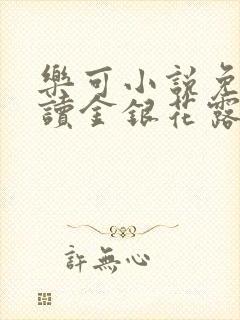 樂可小說免
讀金銀花露
許無心